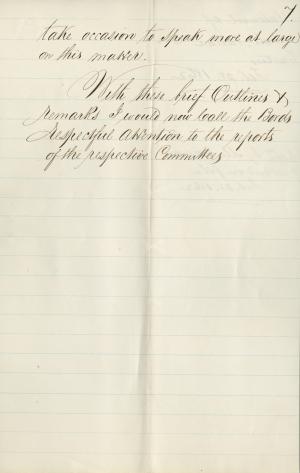 7.
take occasion to speak more at large
on this matter.
With these brief Outlines &
remarks I would now call the Bords
respectful attention to the reports
of the respective Committees